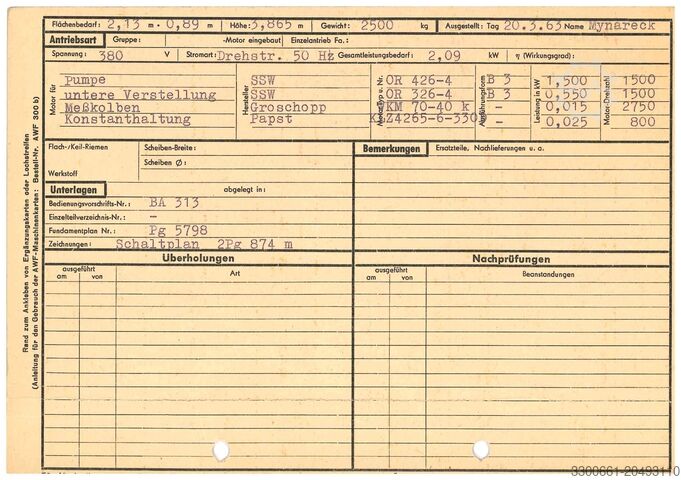 Flächenbedarf: 2,13 m · 0,89 m Höhe: 3,865 m Gewicht: 2500 kg Ausgestellt: Tag 20.3.63 Name Mynareck
Antriebsart Gruppe: -Motor eingebaut Einzelantrieb Fa.:
Spannung: 380 V Stromart: Drehstr. 50 Hz Gesamtleistungsbedarf: 2,09 kW η (Wirkungsgrad):
Motor für Hersteller Motor-Type u. Nr. Ausführungsform Leistung in kW Motor-Drehzahl
Pumpe SSW OR 426-4 B 3 1,500 1500
untere Verstellung SSW OR 326-4 B 3 0,550 1500
Meßkolben Groschopp KM 70-40 k - 0,015 2750
Konstanthaltung Papst KLZ4265-6-330 - 0,025 800
Flach-/Keil-Riemen Scheiben-Breite:
Scheiben Ø:
Werkstoff
Bemerkungen Ersatzteile, Nachlieferungen u. a.
Unterlagen abgelegt in:
Bedienungsvorschrifts-Nr.: BA 313
Einzelteilverzeichnis-Nr.: -
Fundamentplan Nr.: Pg 5798
Zeichnungen: Schaltplan 2Pg 874 m
Überholungen Nachprüfungen
ausgeführt Art ausgeführt Beanstandungen
am von am von
Rand zum Ankleben von Ergänzungskarten oder Lochstreifen
(Anleitung für den Gebrauch der AWF-Maschinenkarten: Bestell-Nr. AWF 300 b)
3300661-20493110